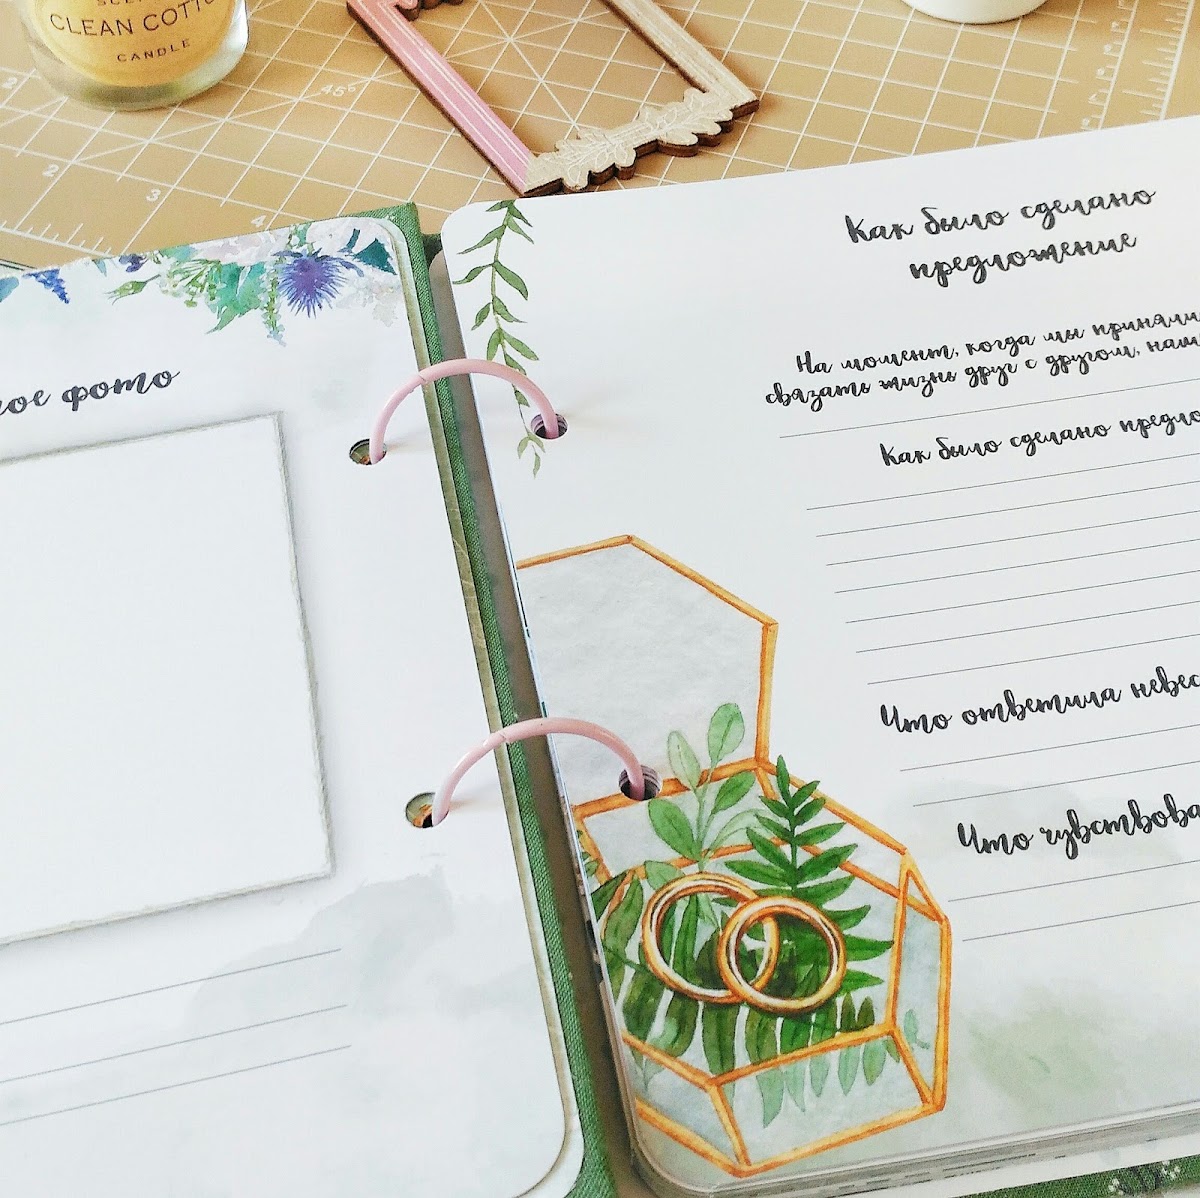 CLEAN COTTO
CANDLE
45°
2
2
3
4
фото
Как было сделано
предложение
На момент, когда мы приняли
связать жизнь друг с другом, нам
Как было сделано предло
Что ответила невес
Что чувствова